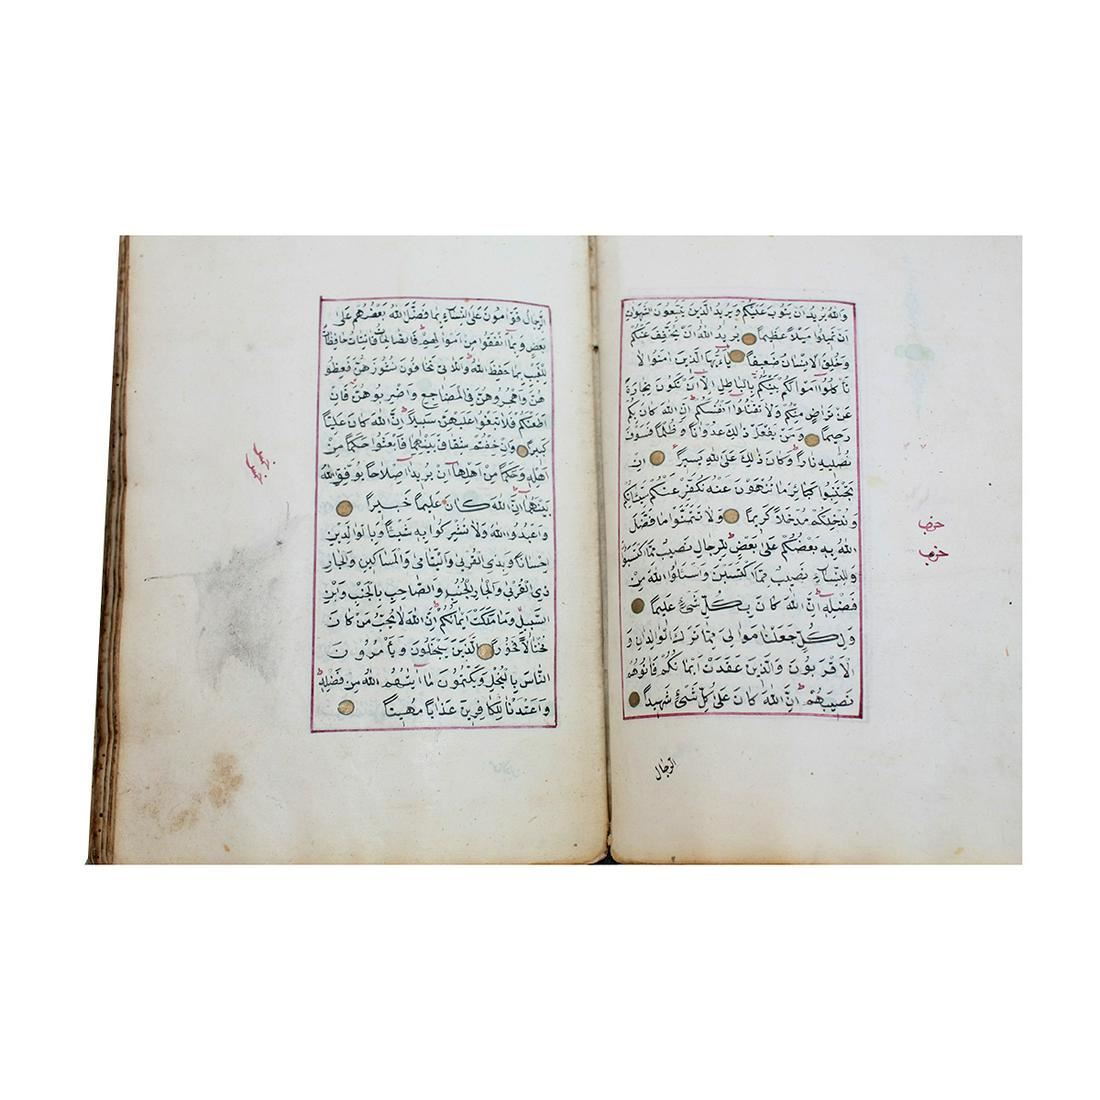 والله يريد ان يتوب عليكم ويريد الذين يتبعون الشهوات
ان تميلوا ميلاً عظيماً يريد الله ان يخفف عنكم
وخلق الانسان ضعيفاً ياءيها الذين امنوا لا
تاكلوا اموالكم بينكم بالباطل الا ان تكون تجارة
عن تراض منكم ولا تقتلوا انفسكم ان الله كان بكم
رحيماً ومن يفعل ذلك عدواناً وظلماً فسوف
نصليه ناراً وكان ذلك على الله يسيراً ان
تجتنبوا كبائر ما تنهون عنه نكفر عنكم سيئاتكم
وندخلكم مدخلاً كريماً ولا تتمنوا ما فضل
الله به بعضكم على بعض للرجال نصيب مما اكتسبوا
وللنساء نصيب مما اكتسبن واسئلوا الله من
فضله ان الله كان بكل شئ عليماً
ولكل جعلنا موالى مما ترك الوالدان و
الاقربون والذين عقدت ايمانكم فاتوهم
نصيبهم ان الله كان على كل شئ شهيداً
الرجال
حزب
حزب
الرجال قوامون على النساء بما فضل الله بعضهم على
بعض وبما انفقوا من اموالهم فالصالحات قانتات حافظات
للغيب بما حفظ الله واللاتى تخافون نشوزهن فعظو
هن واهجروهن فى المضاجع واضربوهن فان
اطعنكم فلا تبغوا عليهن سبيلاً ان الله كان علياً
كبيراً وان خفتم شقاق بينهما فابعثوا حكماً من
اهله وحكماً من اهلها ان يريدا اصلاحاً يوفق الله
بينهما ان الله كان عليماً خبيراً
واعبدوا الله ولا تشركوا به شيئاً وبالوالدين
احساناً وبذى القربى واليتامى والمساكين والجار
ذى القربى والجار الجنب والصاحب بالجنب وابن
السبيل وما ملكت ايمانكم ان الله لا يحب من كان
مختالاً فخوراً الذين يبخلون ويأمرون
الناس بالبخل ويكتمون ما اتيهم الله من فضله
واعتدنا للكافرين عذاباً مهيناً